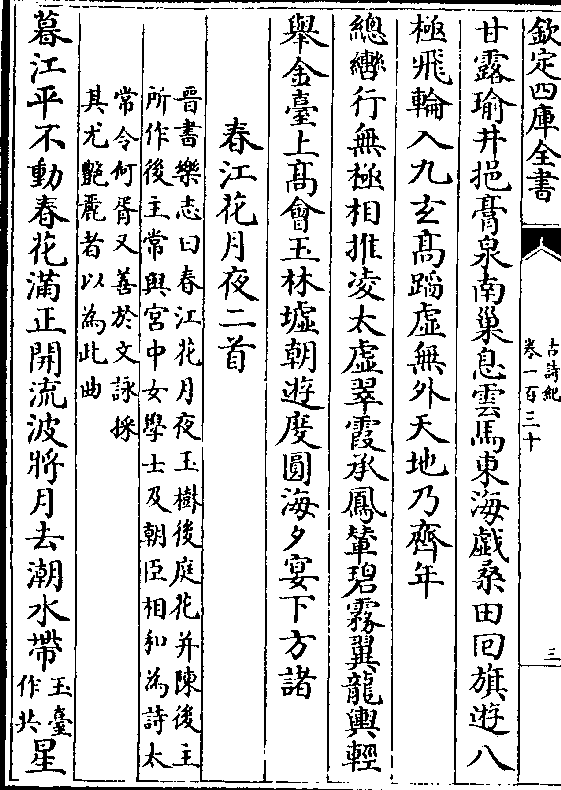 欽定四庫全書
古詩紀
卷一百三十
三
甘露瑜井挹膏泉南巢息雲馬東海戯桑田回旗遊八
極飛輪入九玄髙蹈虚無外天地乃齊年
總轡行無極相推凌太虚翠霞承鳳輦碧霧翼龍輿輕
舉金臺上髙會玉林墟朝遊度圓海夕宴下方諸
春江花月夜二首
晋書樂志曰春江花月夜玉樹後庭花并陳後主
所作後主常與宮中女學士及朝臣相和為詩太
常令何胥又善於文詠採
其尤艷麗者以為此曲
暮江平不動春花滿正開流波將月去潮水帶
玉臺
作共
星